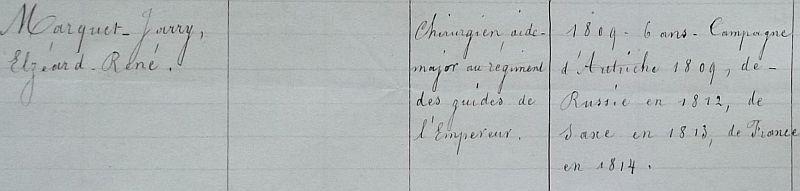 Marquet-Jarry,
Elzéard-René.
Chirurgien, aide-
major au régiment
des guides de
l'Empereur.
1809 - 6 ans - Campagne
d'Autriche 1809, de -
Russie en 1812, de
Saxe en 1813, de France
en 1814.